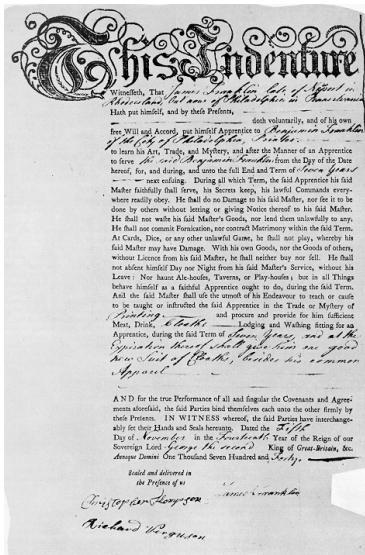 This Indenture
Witnesseth, That James Franklin late of Newport in
Rhodeisland, but now of Philadelphia in Pensilvania
Hath put himself, and by these Presents,
doth voluntarily, and of his own
free Will and Accord, put himself Apprentice to Benjamin Franklin
of the City of Philadelphia, Printer
to learn his Art, Trade, and Mystery, and after the Manner of an Apprentice
to serve the said Benjamin Franklin from the Day of the Date
hereof, for, and during, and unto the full End and Term of Seven Years
next ensuing. During all which Term, the said Apprentice his said
Master faithfully shall serve, his Secrets keep, his lawful Commands every-
where readily obey. He shall do no Damage to his said Master, nor see it to be
done by others without letting or giving Notice thereof to his said Master.
He shall not waste his said Master's Goods, nor lend them unlawfully to any.
He shall not commit Fornication, nor contract Matrimony within the said Term.
At Cards, Dice, or any other unlawful Game, he shall not play, whereby his
said Master may have Damage. With his own Goods, nor the Goods of others,
without Licence from his said Master, he shall neither buy nor sell. He shall
not absent himself Day nor Night from his said Master's Service, without his
Leave: Nor haunt Ale-houses, Taverns, or Play-houses; but in all Things
behave himself as a faithful Apprentice ought to do, during the said Term.
And the said Master shall use the utmost of his Endeavour to teach or cause
to be taught or instructed the said Apprentice in the Trade or Mystery of
Printing and procure and provide for him sufficient
Meat, Drink, Cloaths Lodging and Washing fitting for an
Apprentice, during the said Term of Seven Years, and at the
Expiration thereof shall give him one good
new Suit of Cloaths, besides his common
Apparel
AND for the true Performance of all and singular the Covenants and Agree-
ments aforesaid, the said Parties bind themselves each unto the other firmly by
these Presents. IN WITNESS whereof, the said Parties have interchange-
ably set their Hands and Seals hereunto. Dated the Fifth
Day of November in the Fourteenth Year of the Reign of our
Sovereign Lord George the second King of Great-Britain, &c.
Annoque Domini One Thousand Seven Hundred and Forty.
Sealed and delivered in
the Presence of us
James Franklin
Christopher Thompson
Richard Ferguson